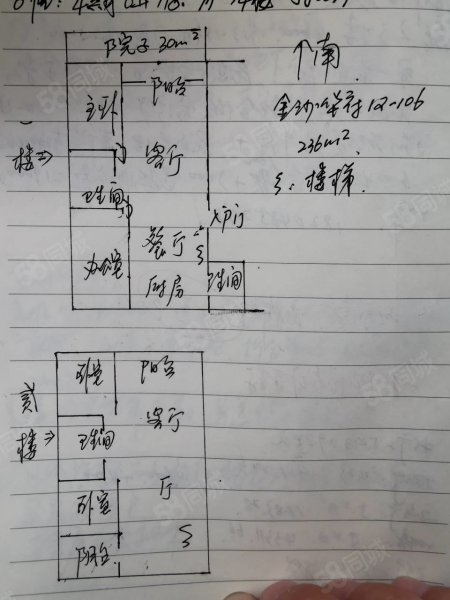 院子 30m²
↑南
主卧
阳台
金沙华府 12-106
236m²
ξ: 楼梯
一楼⇒
客厅
卫生间
入户门
餐厅
办公室
厨房
卫生间
卧室
阳台
贰楼⇒
客厅
卫生间
厅
卧室
阳台
58同城